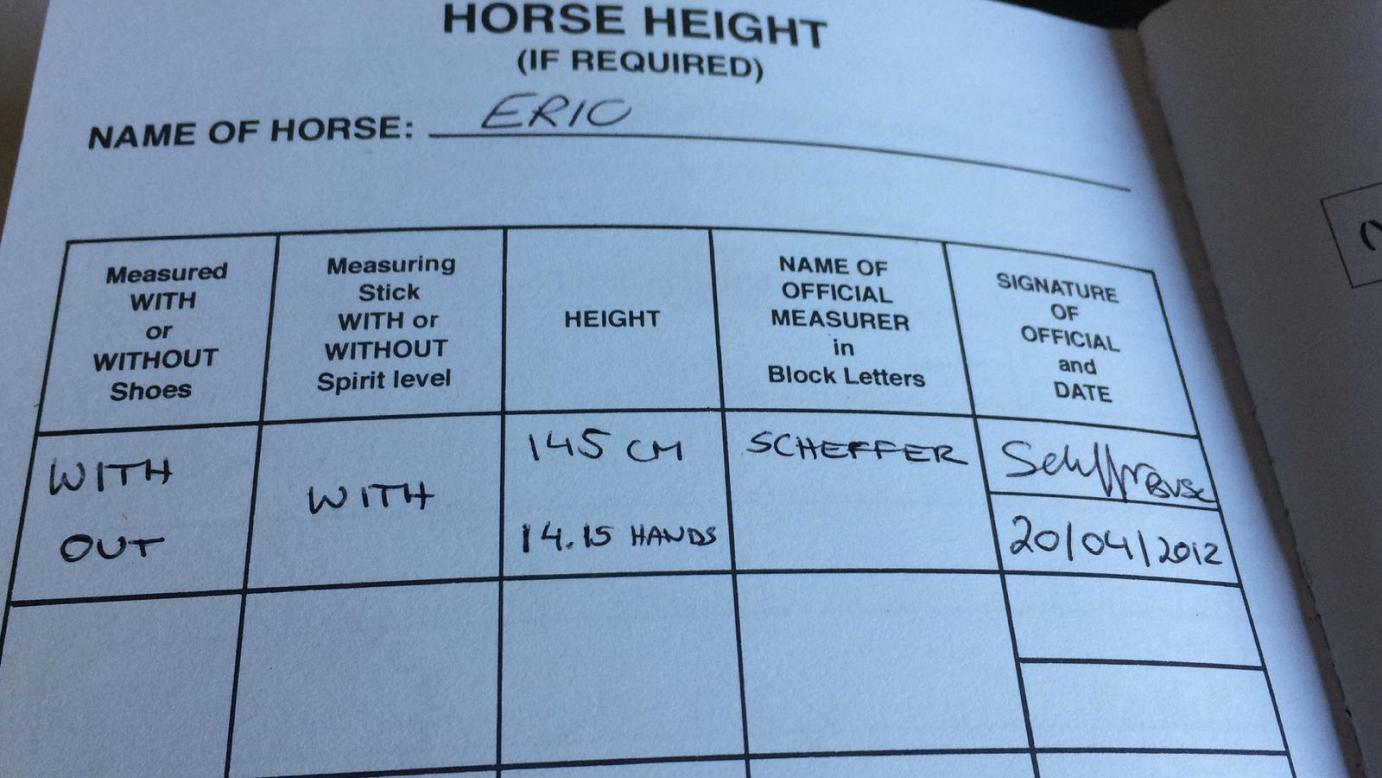 HORSE HEIGHT
(IF REQUIRED)
NAME OF HORSE: ERIC
Measured
WITH
or
WITHOUT
Shoes
Measuring
Stick
WITH or
WITHOUT
Spirit level
HEIGHT
NAME OF
OFFICIAL
MEASURER
in
Block Letters
SIGNATURE
OF
OFFICIAL
and
DATE
WITH
OUT
WITH
145 CM
14.15 HANDS
SCHEFFER
BVSc
20/04/2012